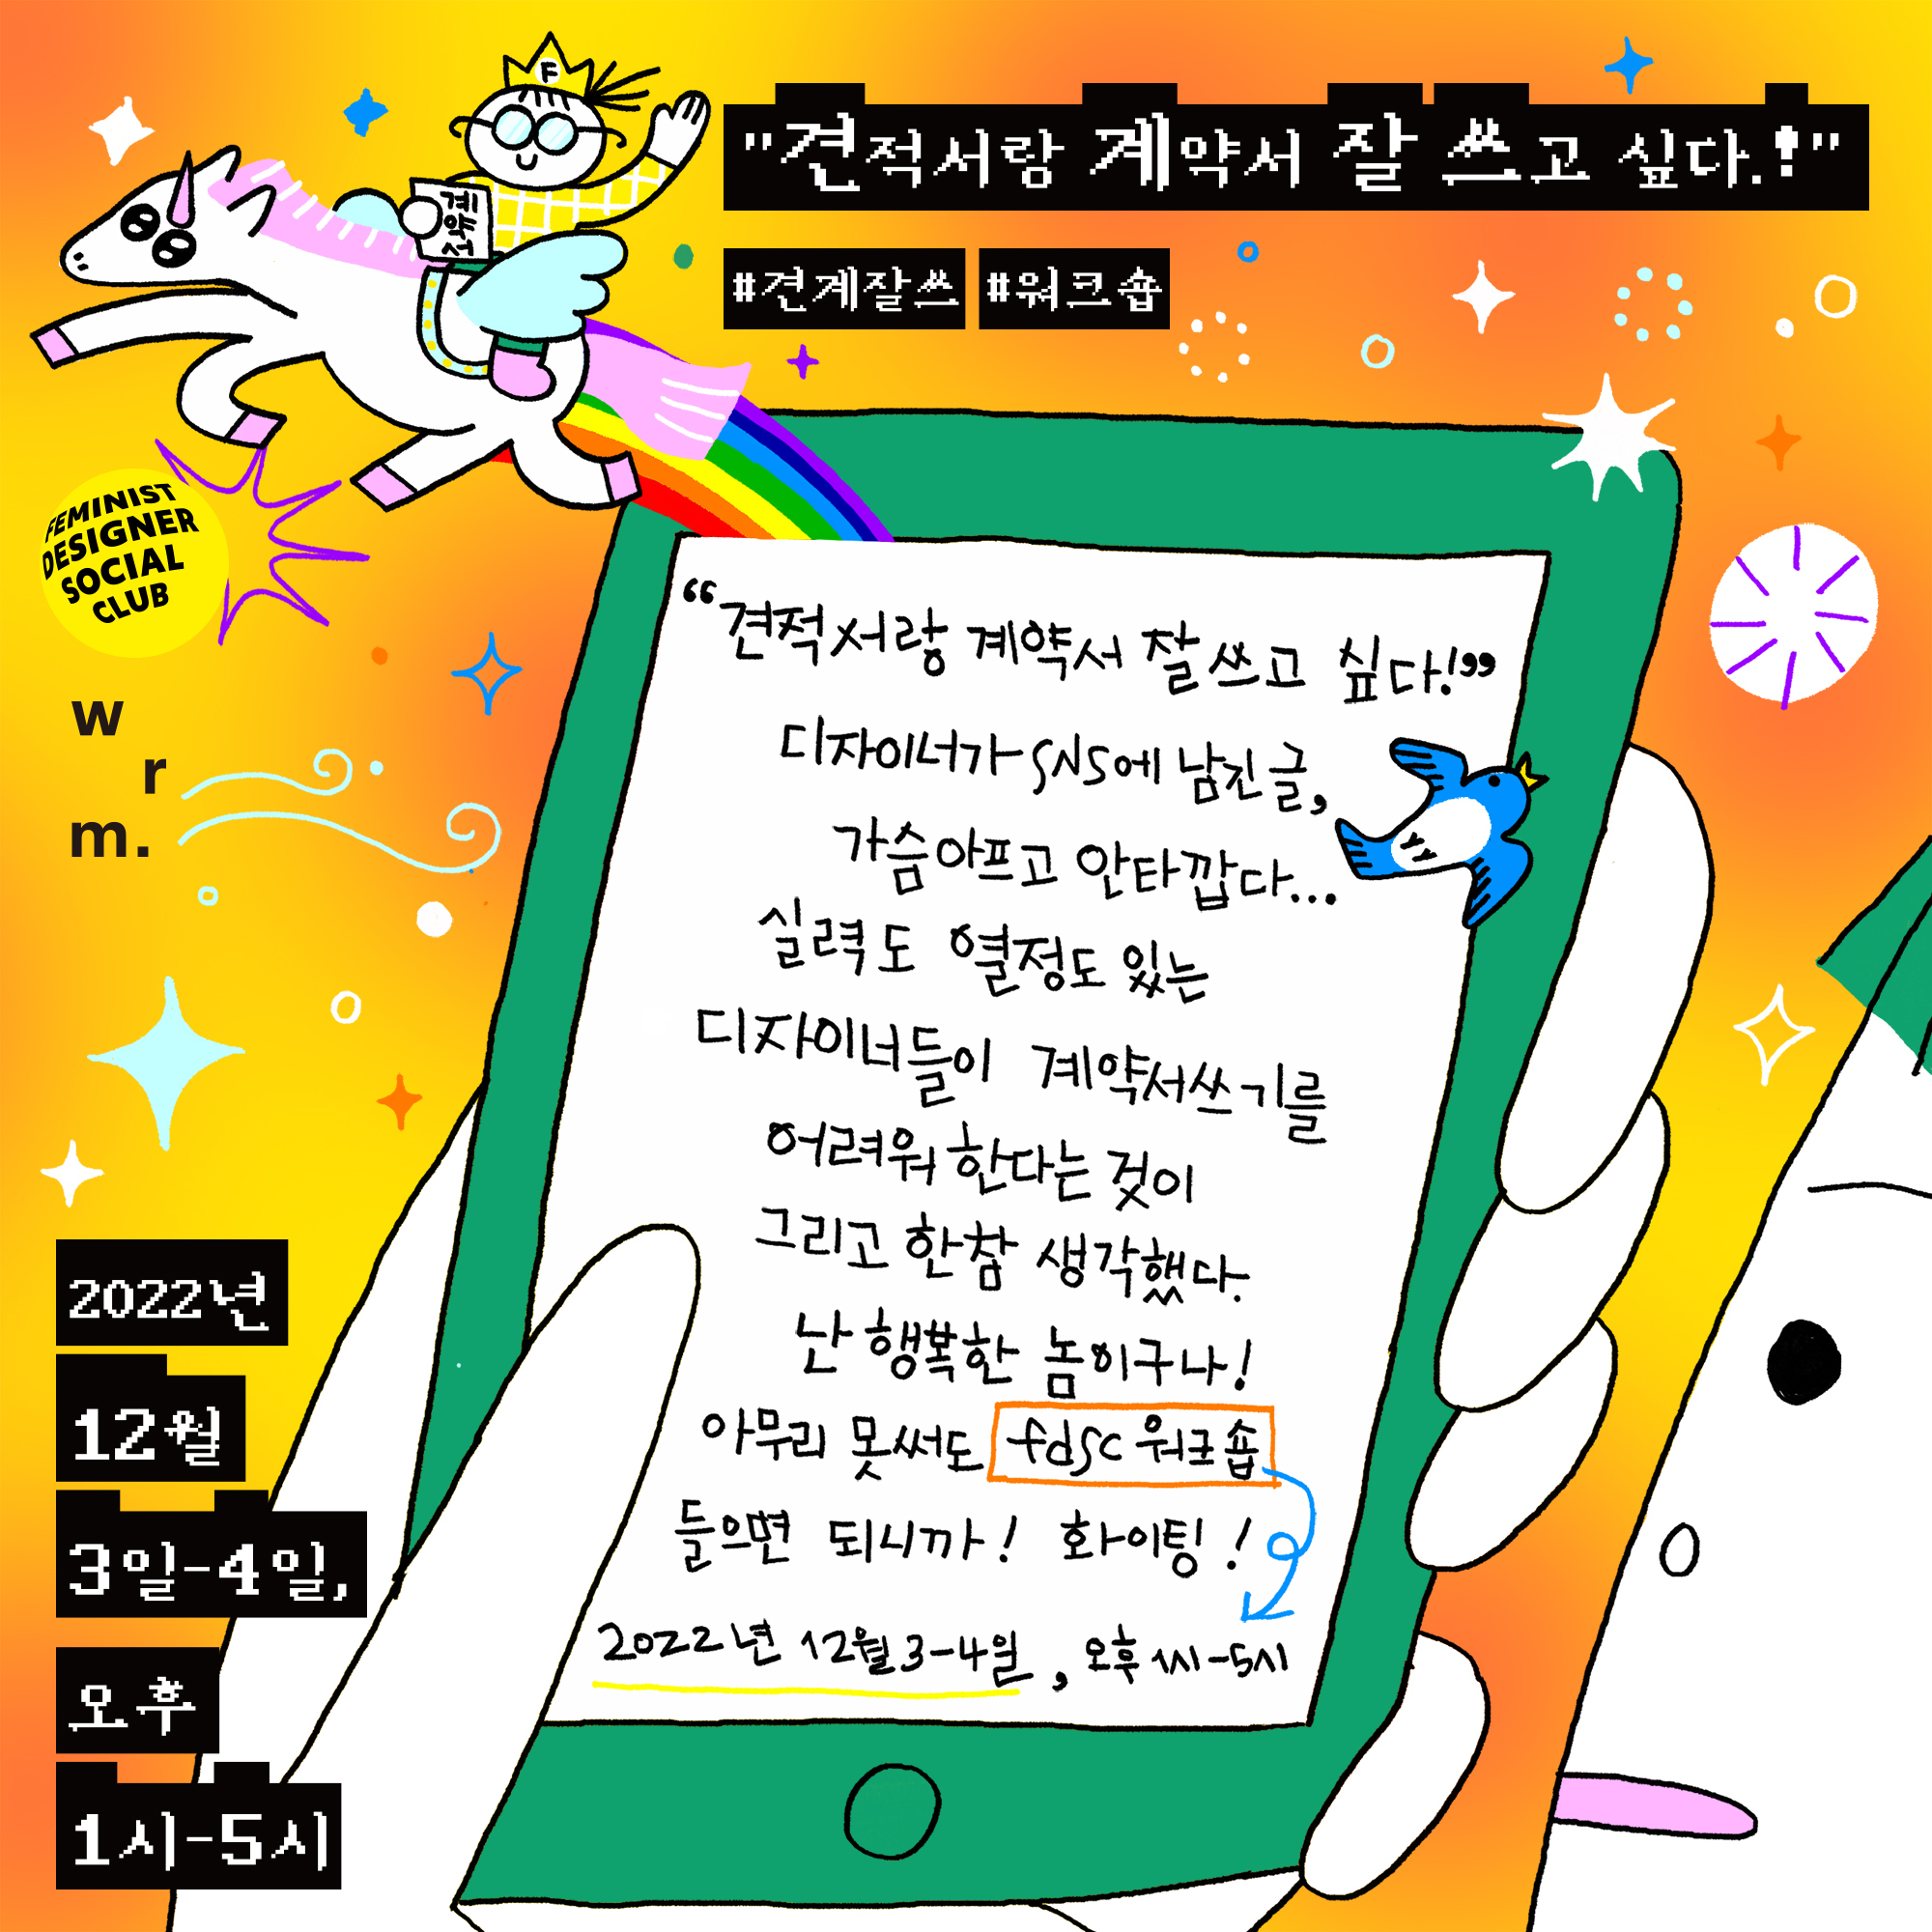 "견적서랑 계약서 잘 쓰고 싶다.!"
#견계잘쓰 #워크숍
F
계약서
FEMINIST
DESIGNER
SOCIAL
CLUB
w
r
m.
“견적서랑 계약서 잘쓰고 싶다!”
디자이너가 SNS에 남긴 글,
가슴아프고 안타깝다...
실력도 열정도 있는
디자이너들이 계약서쓰기를
어려워 한다는 것이
그리고 한참 생각했다.
난 행복한 놈이구나!
아무리 못써도 fdsc 워크숍
들으면 되니까! 화이팅!
2022년 12월 3-4일, 오후 1시-5시
2022년
12월
3일-4일,
오후
1시-5시